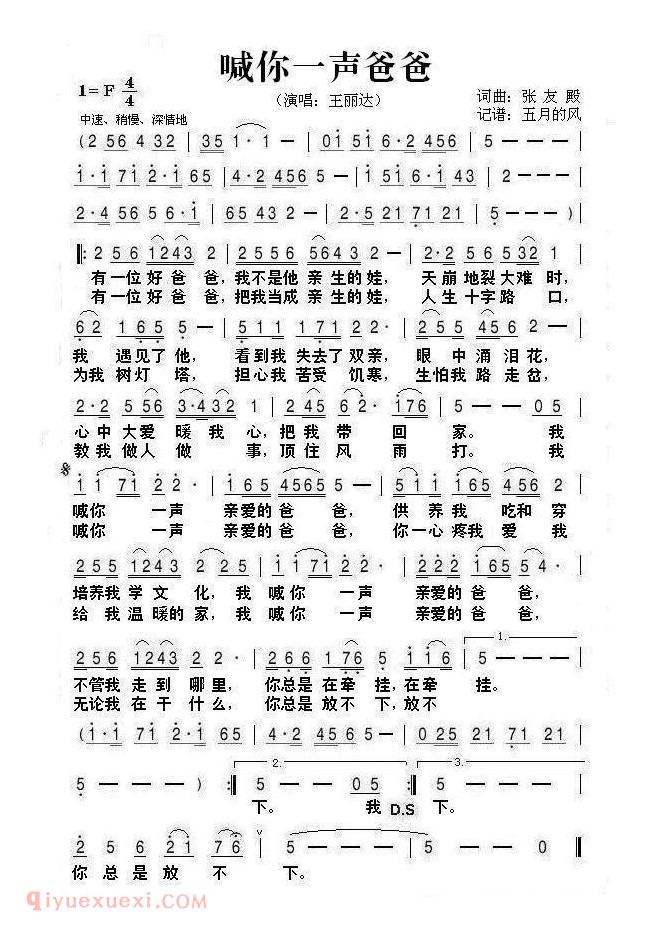 喊你一声爸爸
1=F 4/4
（演唱：王丽达）
词曲：张友殿
中速、稍慢、深情地
记谱：五月的风
(2 56 432 | 35 1· 1 — | 01 51 6·2 456 | 5 — — — |
1·1 71 2·1 65 | 4·2 456 5 — | 51 65 1·6 143 | 2 — — — |
2·4 56 56·1 | 65 43 2 — | 2·5 21 71 21 | 5 — — — )|
‖: 2 56 1243 2 | 2555 56432 — | 2·2 456 532 1 |
有一位好爸爸，我不是他亲生的娃，天崩地裂大难时，
有一位好爸爸，把我当成亲生的娃，人生十字路口，
62 165 5 — | 511 171 2 — | 255 456 2 — |
我遇见了他，看到我失去了双亲，眼中涌泪花，
为我树灯塔，担心我苦受饥寒，生怕我路走岔，
2·2 556 3·432 1 | 245 62·176 | 5 — — 05 |
心中大爱暖我心，把我带回家。我
教我做人做事，顶住风雨打。我
11 71 2 2· | 165 4565 5 — | 511 165 456 2 |
喊你一声亲爱的爸爸，供养我吃和穿
喊你一声亲爱的爸爸，你一心疼我爱我
255 1243 2 2·5 | 11 71 2 2 2 | 165 65 54· |
培养我学文化，我喊你一声亲爱的爸爸，
给我温暖的家，我喊你一声亲爱的爸爸，
256 1243 2 2· | 266 176 5 116 | 5 — — — |
1.
不管我走到哪里，你总是在牵挂，在牵挂。
无论我在干什么，你总是放不下，放不
(1·1 71 2·1 65 | 4·2 456 5 — | 025 21 71 21 |
5 — — — ) :‖ 5 — — 05 :‖ 5 — — — |
2.
3.
下。我 D.S 下。
2 5 6 21 76 | 5 — — — | 5 — — — | 5 0 0 0 ‖
你总是放不下。
qiyuexuexi.com